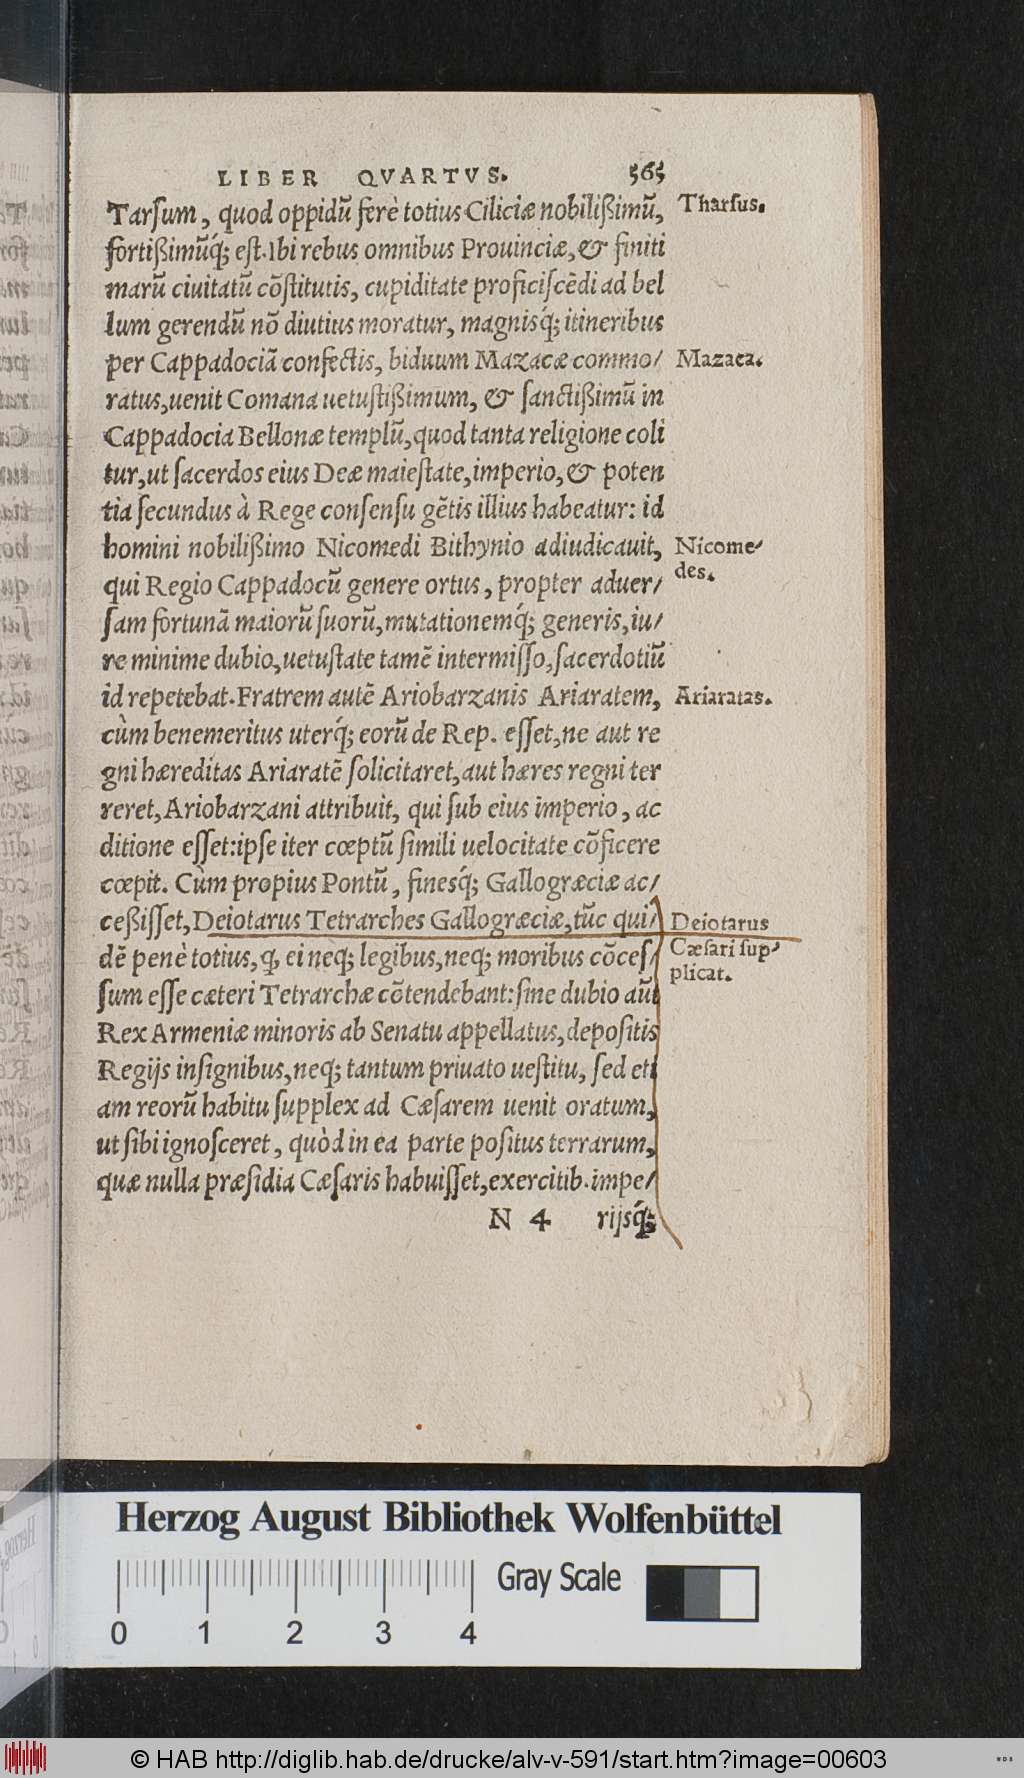 LIBER QVARTVS. 565
Tarsum, quod oppidũ ferè totius Ciliciæ nobilißimũ, Tharsus.
fortißimũq́; est. Ibi rebus omnibus Prouinciæ, & finiti
marũ ciuitatũ cõstitutis, cupiditate proficiscẽdi ad bel
lum gerendũ nõ diutius moratur, magnisq́; itineribus
per Cappadociã confectis, biduum Mazacæ commo/ Mazaca.
ratus, uenit Comana uetustißimum, & sanctißimũ in
Cappadocia Bellonæ templũ, quod tanta religione coli
tur, ut sacerdos eius Deæ maiestate, imperio, & poten
tia secundus à Rege consensu gẽtis illius habeatur: id
homini nobilißimo Nicomedi Bithynio adiudicauit, Nicome/
des.
qui Regio Cappadocũ genere ortus, propter aduer/
sam fortunã maiorũ suorũ, mutationemq́; generis, iu/
re minime dubio, uetustate tamẽ intermisso, sacerdotiũ
id repetebat. Fratrem autẽ Ariobarzanis Ariaratem, Ariaratas.
cùm benemeritus uterq́; eorũ de Rep. esset, ne aut re
gni hæreditas Ariaratẽ solicitaret, aut hæres regni ter
reret, Ariobarzani attribuit, qui sub eius imperio, ac
ditione esset: ipse iter cœptũ simili uelocitate cõficere
cœpit. Cùm propius Pontũ, finesq́; Gallogræciæ ac/
ceßisset, Deiotarus Tetrarches Gallogræciæ, tũc qui/ Deiotarus
Cæsari sup/
plicat.
dẽ penè totius, q̃, ei neq; legibus, neq; moribus cõces/
sum esse cæteri Tetrarchæ cõtendebant: sine dubio aũt
Rex Armeniæ minoris ab Senatu appellatus, depositis
Regijs insignibus, neq; tantum priuato uestitu, sed eti
am reorũ habitu supplex ad Cæsarem uenit oratum,
ut sibi ignosceret, quòd in ea parte positus terrarum,
quæ nulla præsidia Cæsaris habuisset, exercitib. impe/
N 4 rijsq́;
Herzog August Bibliothek Wolfenbüttel
Gray Scale
0 1 2 3 4
© HAB http://diglib.hab.de/drucke/alv-v-591/start.htm?image=00603